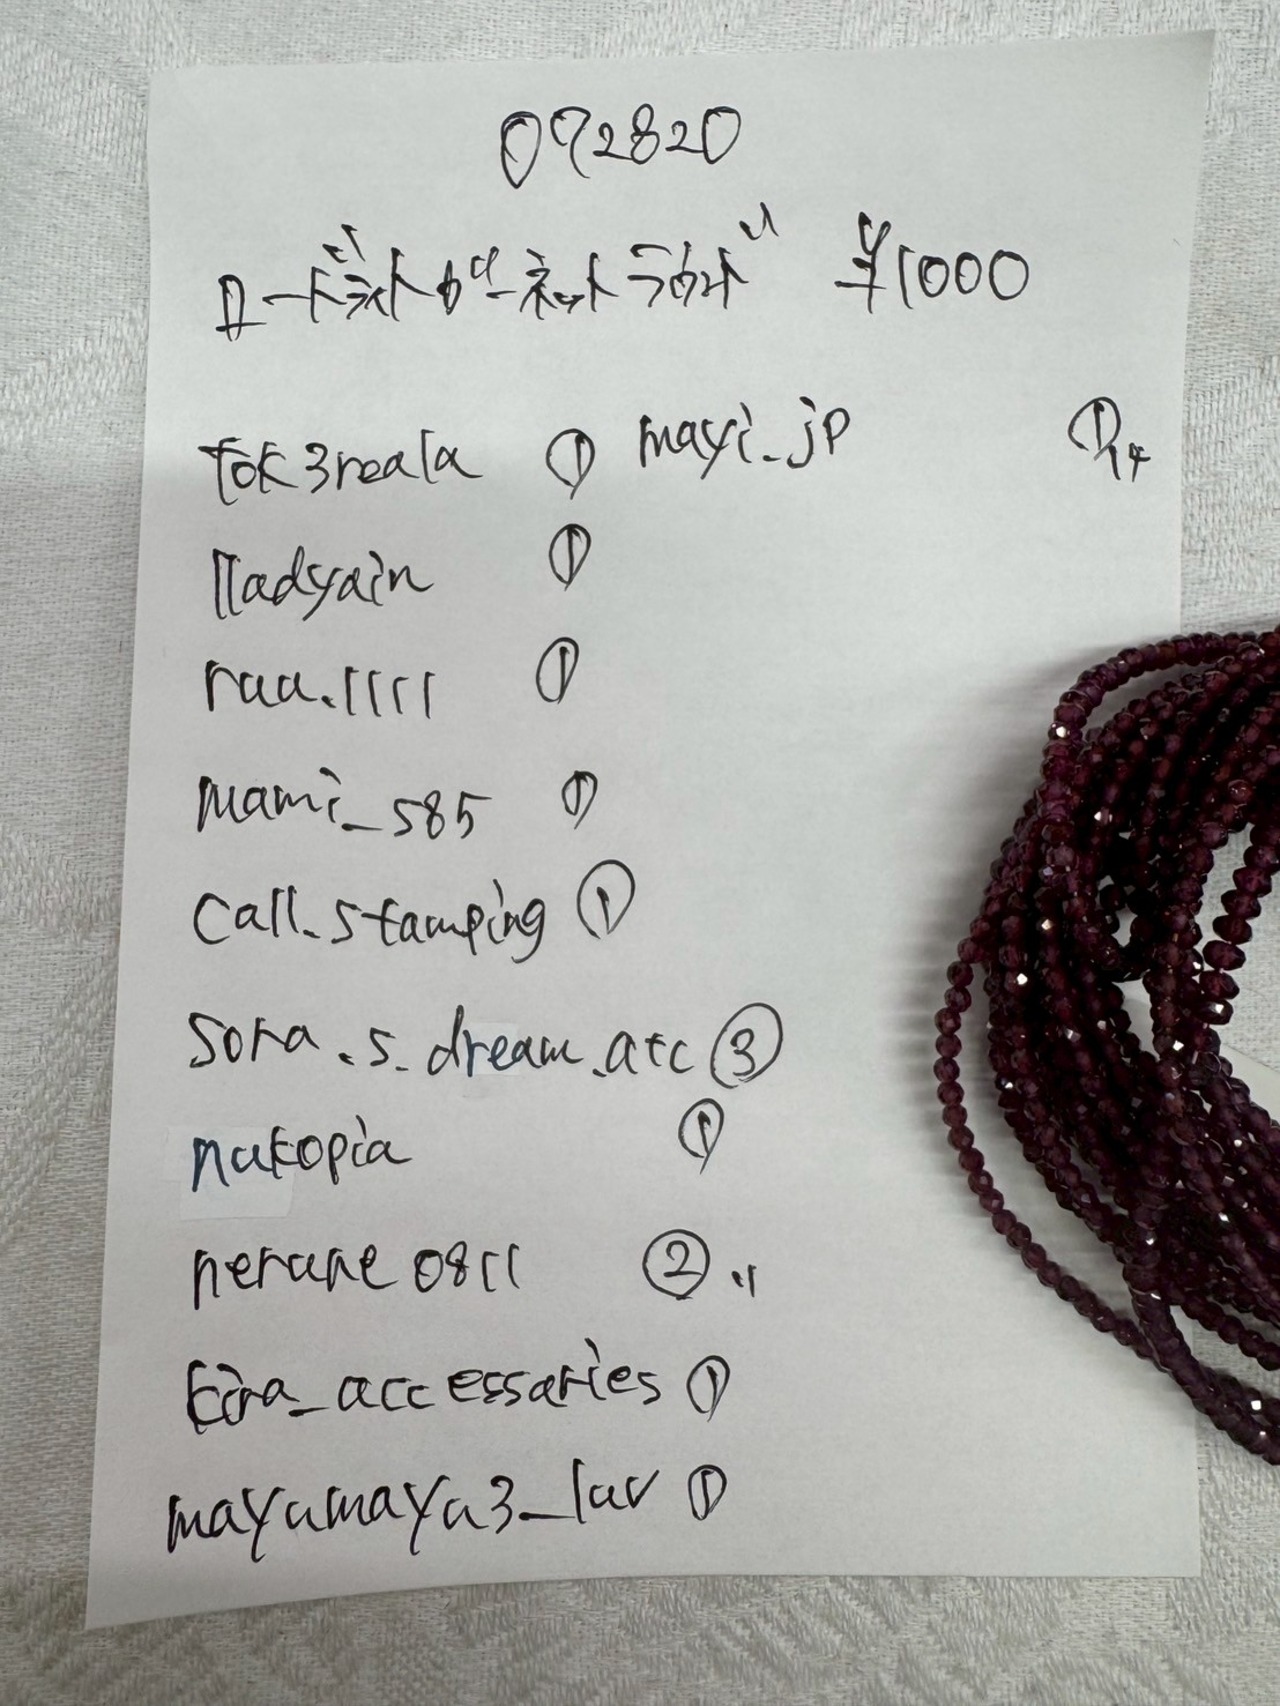 092820
ロードライトガーネットラウンド ¥1000
tok3reala ① mayi_jp ①14
lladyain ①
raa.1111 ①
mami_585 ①
call.stamping ①
sora.s.dream.atc ③
nakopia ①
nerune0811 ② 11
kira_accessaries ①
mayumayu3_luv ①